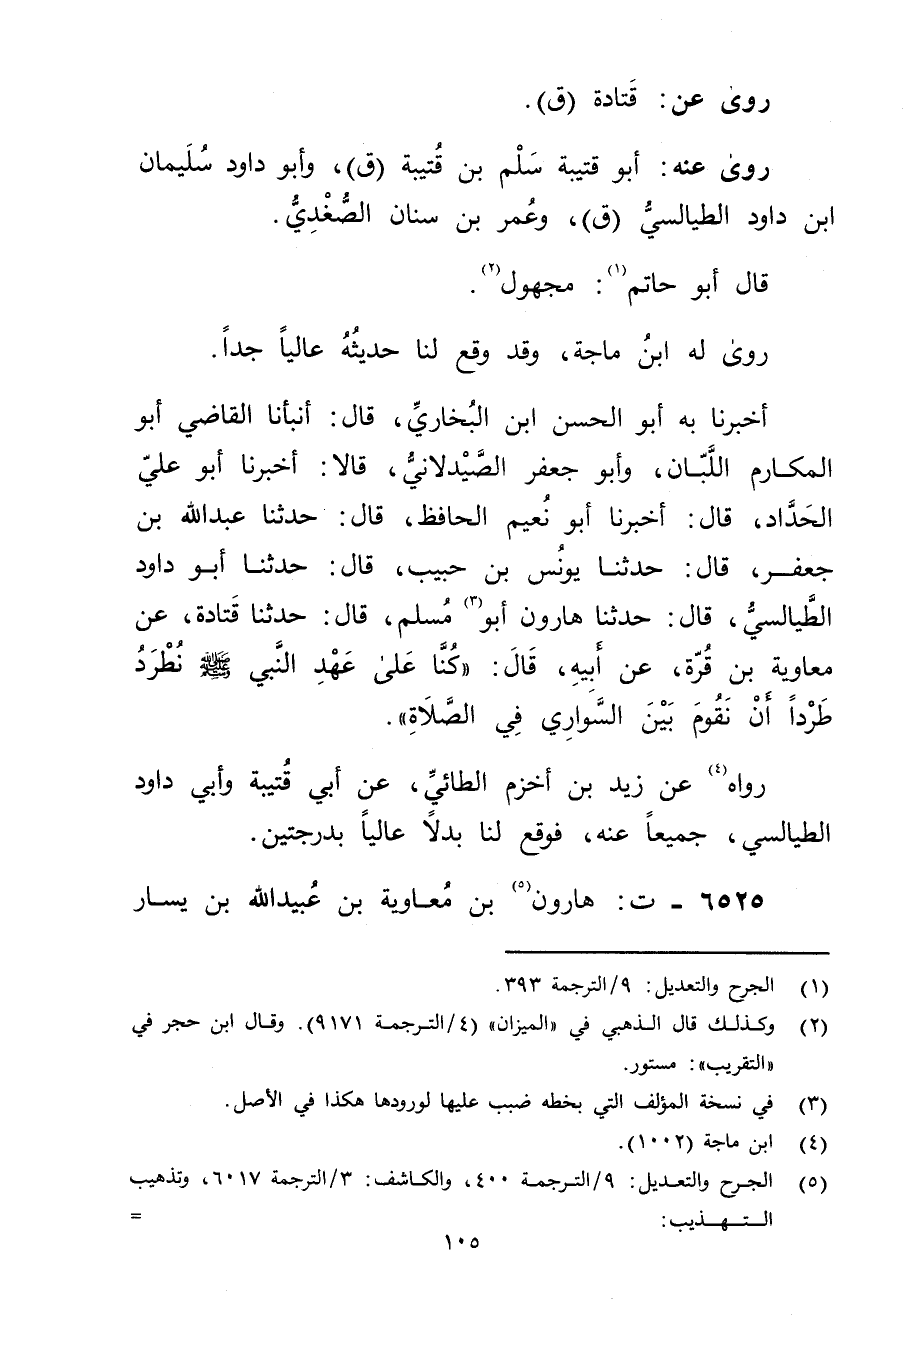 روىٰ عن: قَتادة (ق).
روىٰ عنه: أبو قتيبة سَلْم بن قُتيبة (ق)، وأبو داود سُلَيمان
ابن داود الطيالسيُّ (ق)، وعُمر بن سنان الصُّغْدِيُّ.
قال أبو حاتم(١): مجهول(٢).
روىٰ له ابنُ ماجة، وقد وقع لنا حديثُهُ عالياً جداً.
أخبرنا به أبو الحسن ابن البُخاريِّ، قال: أنبأنا القاضي أبو
المكارم اللَّبّان، وأبو جعفر الصَّيْدلانيُّ، قالا: أخبرنا أبو عليّ
الحَدَّاد، قال: أخبرنا أبو نُعيم الحافظ، قال: حدثنا عبدالله بن
جعفر، قال: حدثنا يونُس بن حبيب، قال: حدثنا أبو داود
الطَّيالسيُّ، قال: حدثنا هارون أبو(٣) مُسلم، قال: حدثنا قَتادة، عن
معاوية بن قُرّة، عن أَبِيهِ، قَالَ: «كُنَّا عَلىٰ عَهْدِ النَّبي ﷺ نُطْرَدُ
طَرْداً أَنْ نَقُومَ بَيْنَ السَّوارِي فِي الصَّلَاةِ».
رواه(٤) عن زيد بن أخزم الطائيِّ، عن أبي قُتيبة وأبي داود
الطيالسي، جميعاً عنه، فوقع لنا بدلاً عالياً بدرجتين.
٦٥٢٥ ـ ت: هارون(٥) بن مُعاوية بن عُبيدالله بن يسار
(١) الجرح والتعديل: ٩/الترجمة ٣٩٣.
(٢) وكذلك قال الذهبي في «الميزان» (٤/الترجمة ٩١٧١). وقال ابن حجر في
«التقريب»: مستور.
(٣) في نسخة المؤلف التي بخطه ضبب عليها لورودها هكذا في الأصل.
(٤) ابن ماجة (١٠٠٢).
(٥) الجرح والتعديل: ٩/الترجمة ٤٠٠، والكاشف: ٣/الترجمة ٦٠١٧، وتذهيب
التهذيب: =
١٠٥